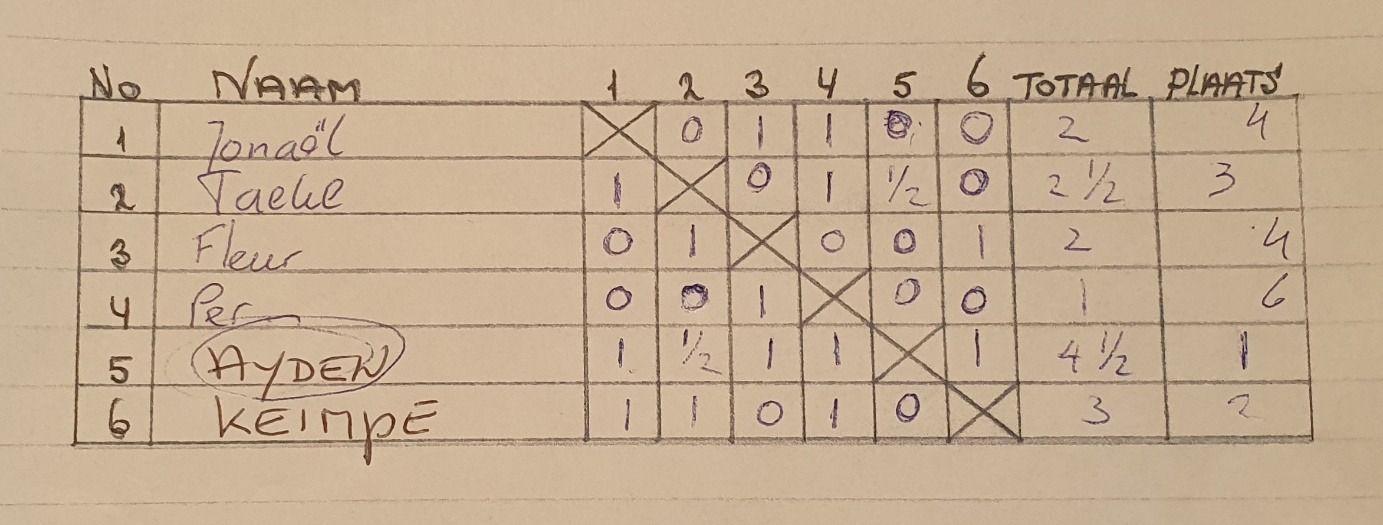 No NAAM 1 2 3 4 5 6 TOTAAL PLAATS
1 Jonaël 0 1 1 0 0 2 4
2 Taeke 1 0 1 ½ 0 2 ½ 3
3 Fleur 0 1 0 0 1 2 4
4 Per 0 0 1 0 0 1 6
5 AYDEN 1 ½ 1 1 1 4 ½ 1
6 KEIMPE 1 1 0 1 0 3 2